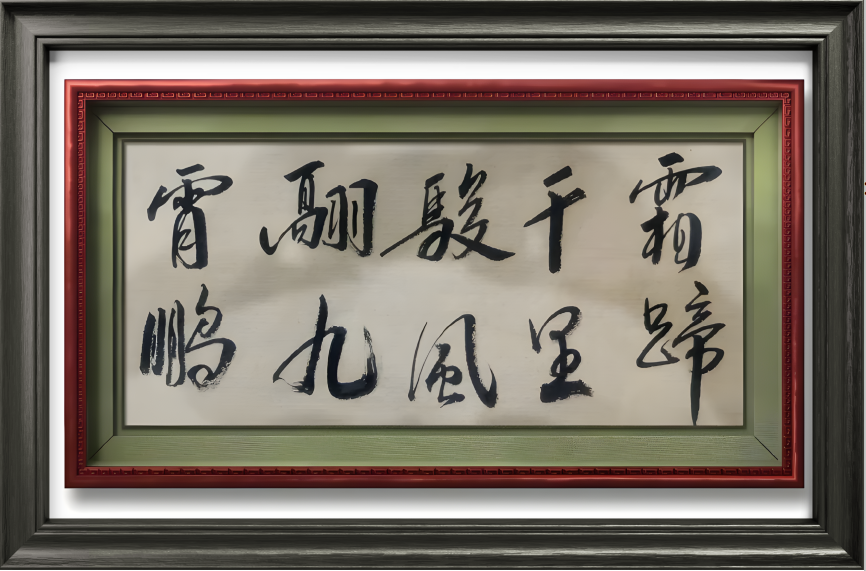 霜蹄
千里
駿風
翮九
霄鵬